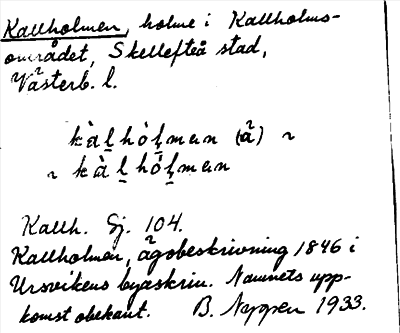 Kallholmen, holme i Kallholms-
området, Skellefteå stad,
Västerb. l.
kàl̲hól̲man (å̀) ~
~ kàl̲hól̲man
Kallh. Gj. 104.
Kallholmen, ägobeskrivning 1846 i
Ursvikens byaskrin. Namnets upp-
komst obekant. B. Nyggen 1933.